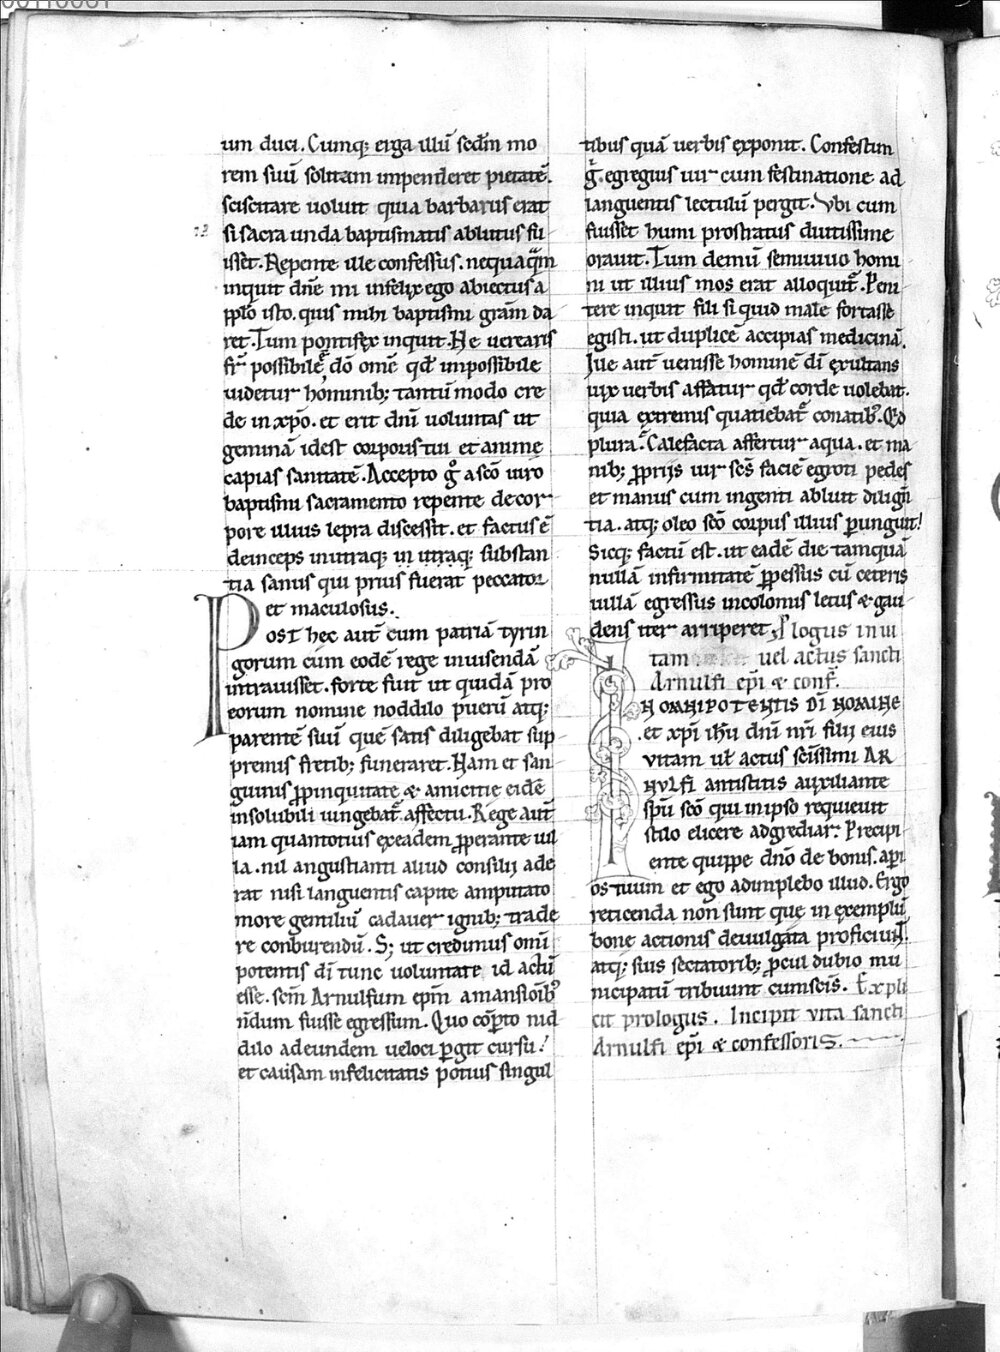 um duci. Cumq; erga illū sedm̄ mo
rem suū solitam impenderet pietatē.
sciscitare uoluit quia barbarus erat
si sacra unda baptismatis ablutus fu
isset. Repente ille confessus. nequaqm̄
inquit dn̄e mi infelix ego abiectus a
pp̄lo isto. quis mihi baptismi grām da
ret. Tum pontifex inquit. Ne uerearis
fr̄ possibile ē dō omē qd̄ impossibile
uidetur hominib; tantū modo cre
de in xp̄o. et erit dn̄i uoluntas ut
geminā idest corporis tui et anime
capias sanitatē. Accepto g̊ a sc̄o uiro
baptismi sacramento repente de cor
pore illius lepra discessit. et factus ē
deinceps inutraq; in utraq; substan
tia sanus qui prius fuerat peccator
et maculosus.
Post hec aut̄ cum patriā tyrin
gorum cum eodē rege inuisendā
intrauisset. forte fuit ut quidā pro
eorum nomine noddilo puerū atq;
parentē suū quē satis diligebat sup
premis fretib; funeraret. Nam et san
guinis p̄pinquitate & amicitie eidē
insolubili iungebat̄ affectu. Rege aut̄
iam quantotius exeadem p̄perante uil
la. nil angustianti aliud consilii ade
rat nisi languentis capite amputato
more gentiliū cadauer ignib; trade
re conburendū. S; ut credimus omī
potentis dī tunc uoluntate id actū
esse. sc̄m Arnulfum ep̄m a mansionib'
n̄dum fuisse egressum. Quo cōp̄to nid
dilo adeundem ueloci p̄git cursu!
et causam infelicitatis potius singul
tibus quā uerbis exponit. Confestim
g̊ egregius uir cum festinatione ad
languentis lectulū pergit. Vbi cum
fuisset humi prostratus diutissime
orauit. Tum demū semiuiuo homi
ni ut illius mos erat alloquit̄. Peni
tere inquit fili si quid male fortasse
egisti. ut duplicē accipias medicinā.
Ille aut̄ uenisse hominē dī exultans
uix uerbis affatur qd̄ corde uolebat.
quia extremis quatiebat̄ conatib'. Qd
plura? Calefacta affertur aqua. et ma
nib; p̄priis uir sc̄s faciē egroti pedes
et manus cum ingenti abluit dilign̄
tia. atq; oleo sc̄o corpus illius p̄unguit!
Sicq; factū est. ut eadē die tamquā
nullā infirmitatē p̄pessus cū ceteris
uillā egressus incolomis letus & gau
dens iter arriperet. Plogus in ui
tam uel actus sancti
Arnulfi ep̄i & conf̄.
IN OMNIPOTENTIS DĪ NOMINE
et xp̄i ih̄u dn̄i nr̄i filii eius
vitam ul̄ actus sc̄issimi AR
NVLFI antistitis auxiliante
sp̄u sc̄o qui in ipso requieuit
stilo elicere adgrediar. Precipi
ente quippe dn̄o de bonis. api
os tuum et ego adimplebo illud. Ergo
reticenda non sunt que in exemplū
bone actionis deuulgata proficiunt.
atq; suis sectatorib; p̄cul dubio mu
nicipatū tribuunt cum sc̄is. Expli
cit prologus. Incipit vita sancti
Arnulfi ep̄i & confessoris.